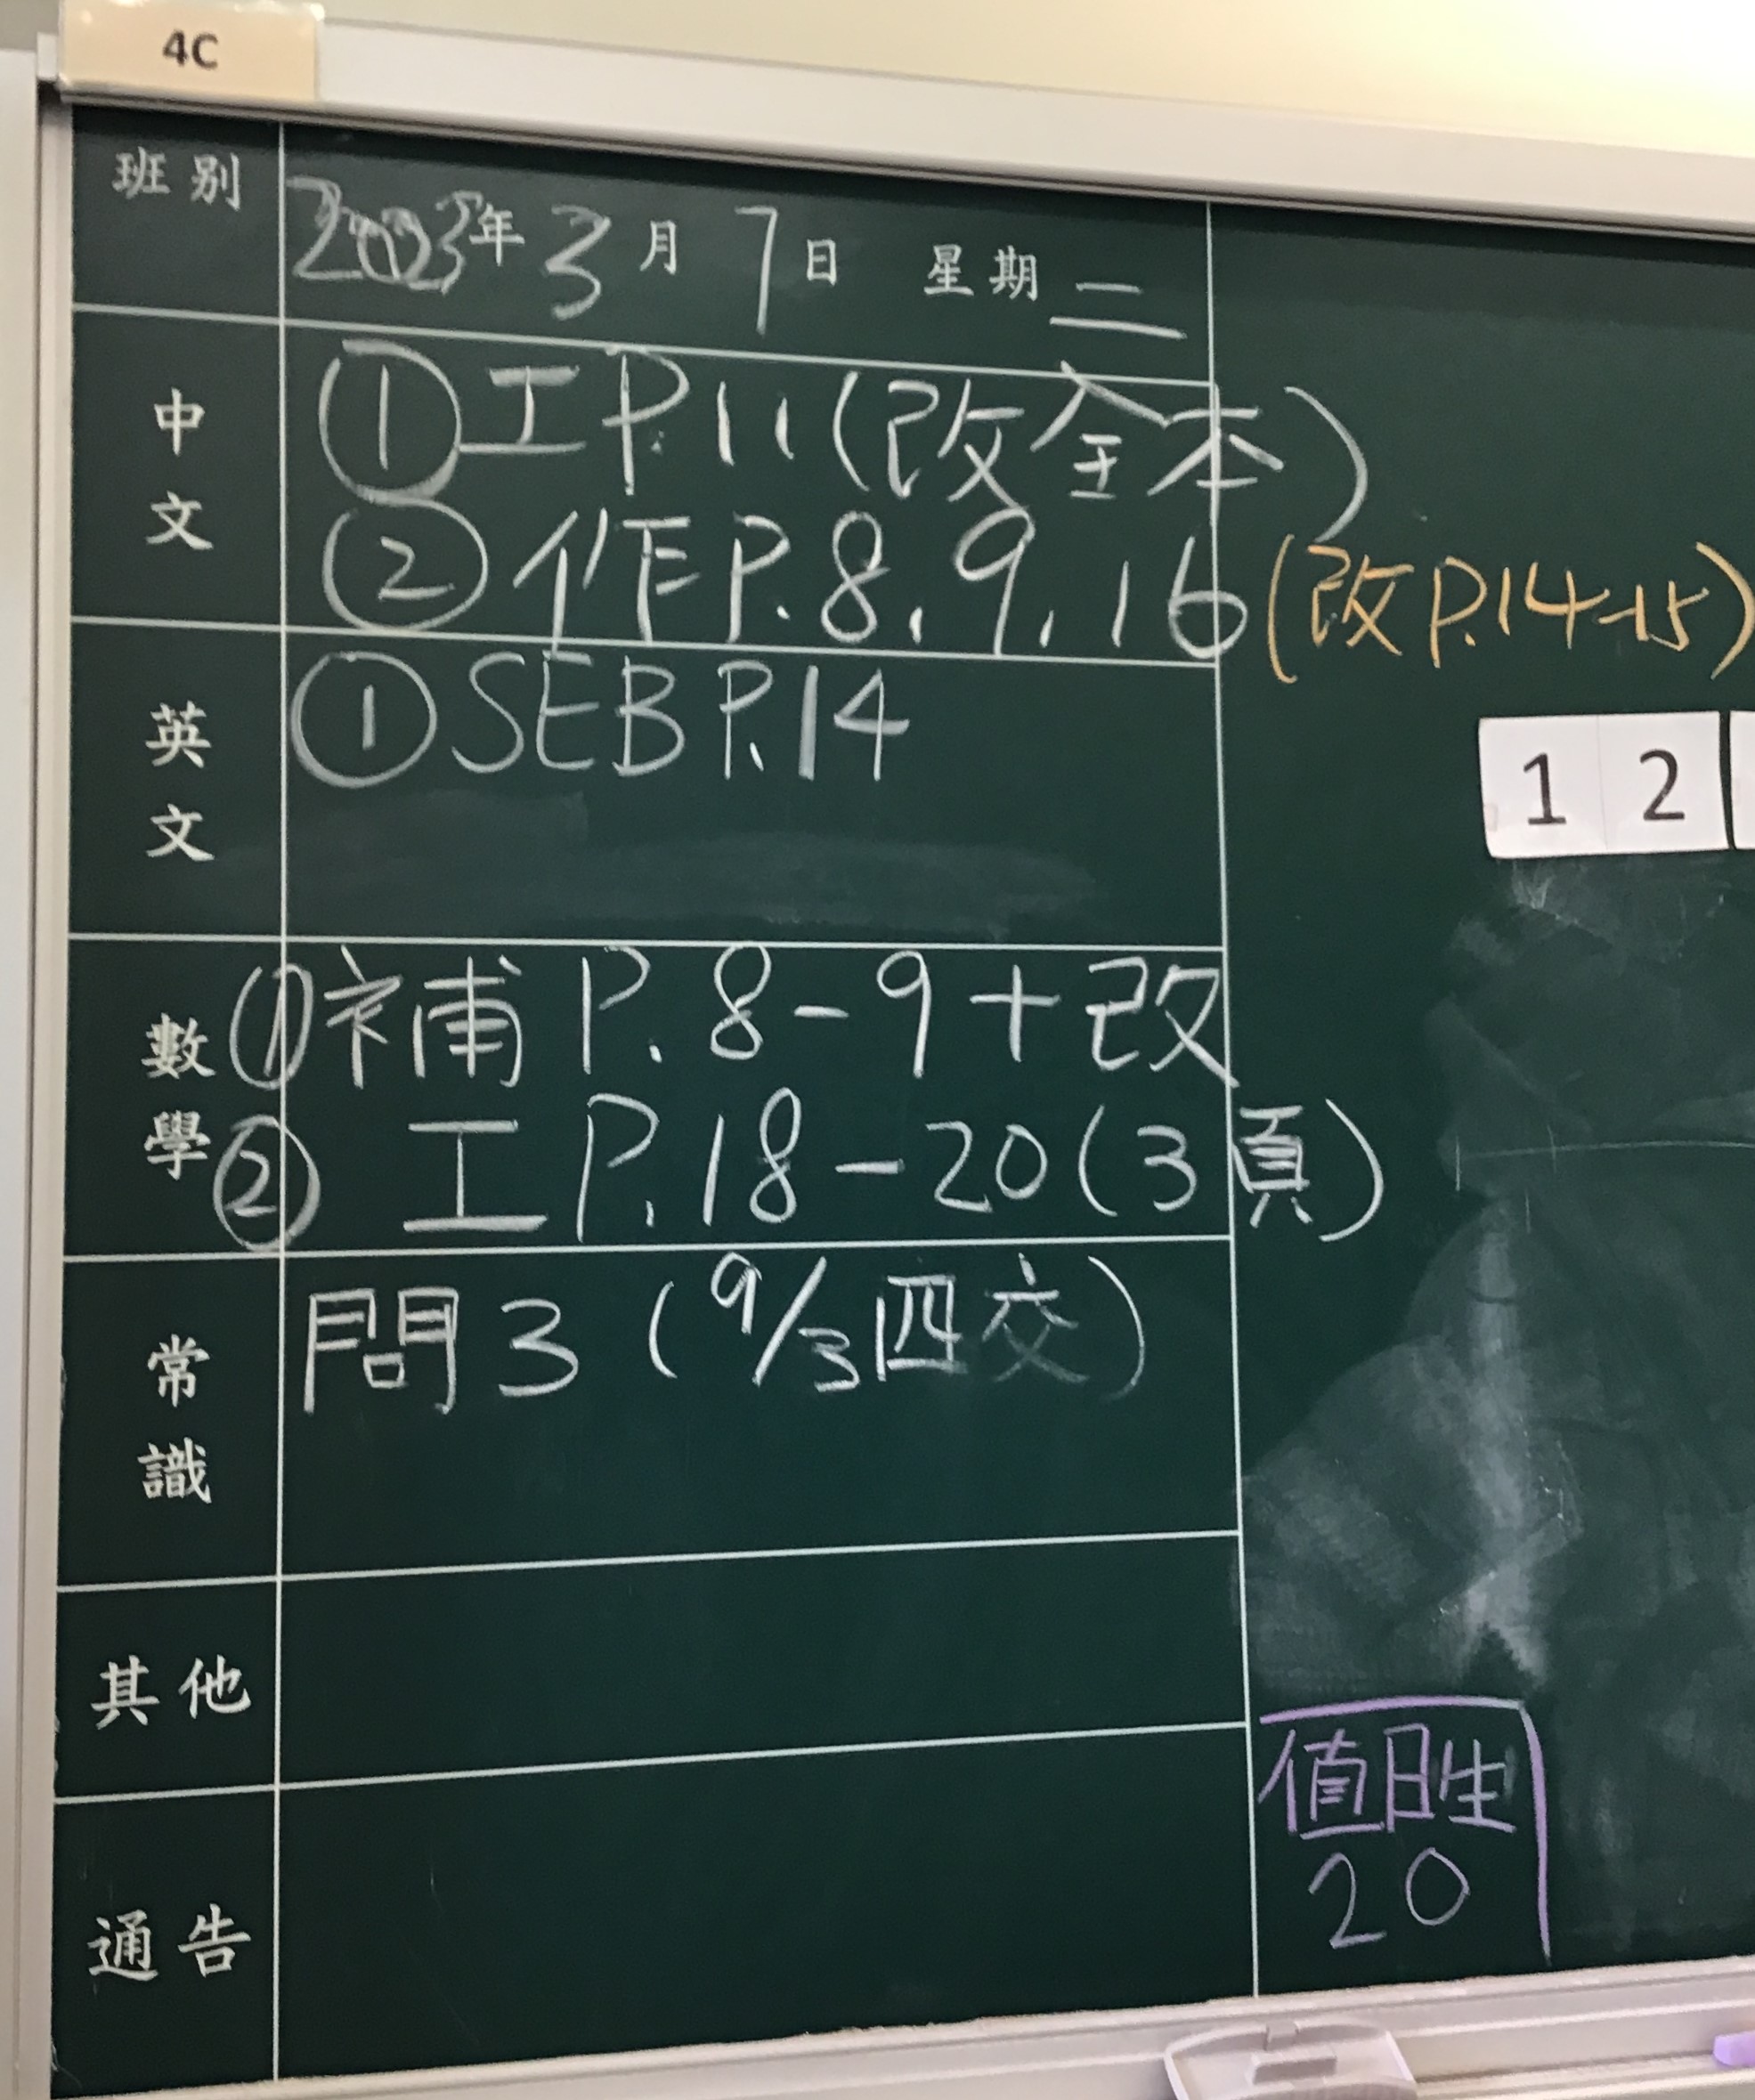 4C
班別 2023年3月7日 星期二
中文
①工P.11(改全本)
②作P.8,9,16(改P.14-15)
英文
①SEB P.14
數學
①補P.8-9+改
②工P.18-20(3頁)
常識
問3(9/3四交)
其他
通告
1 2
值日生
20